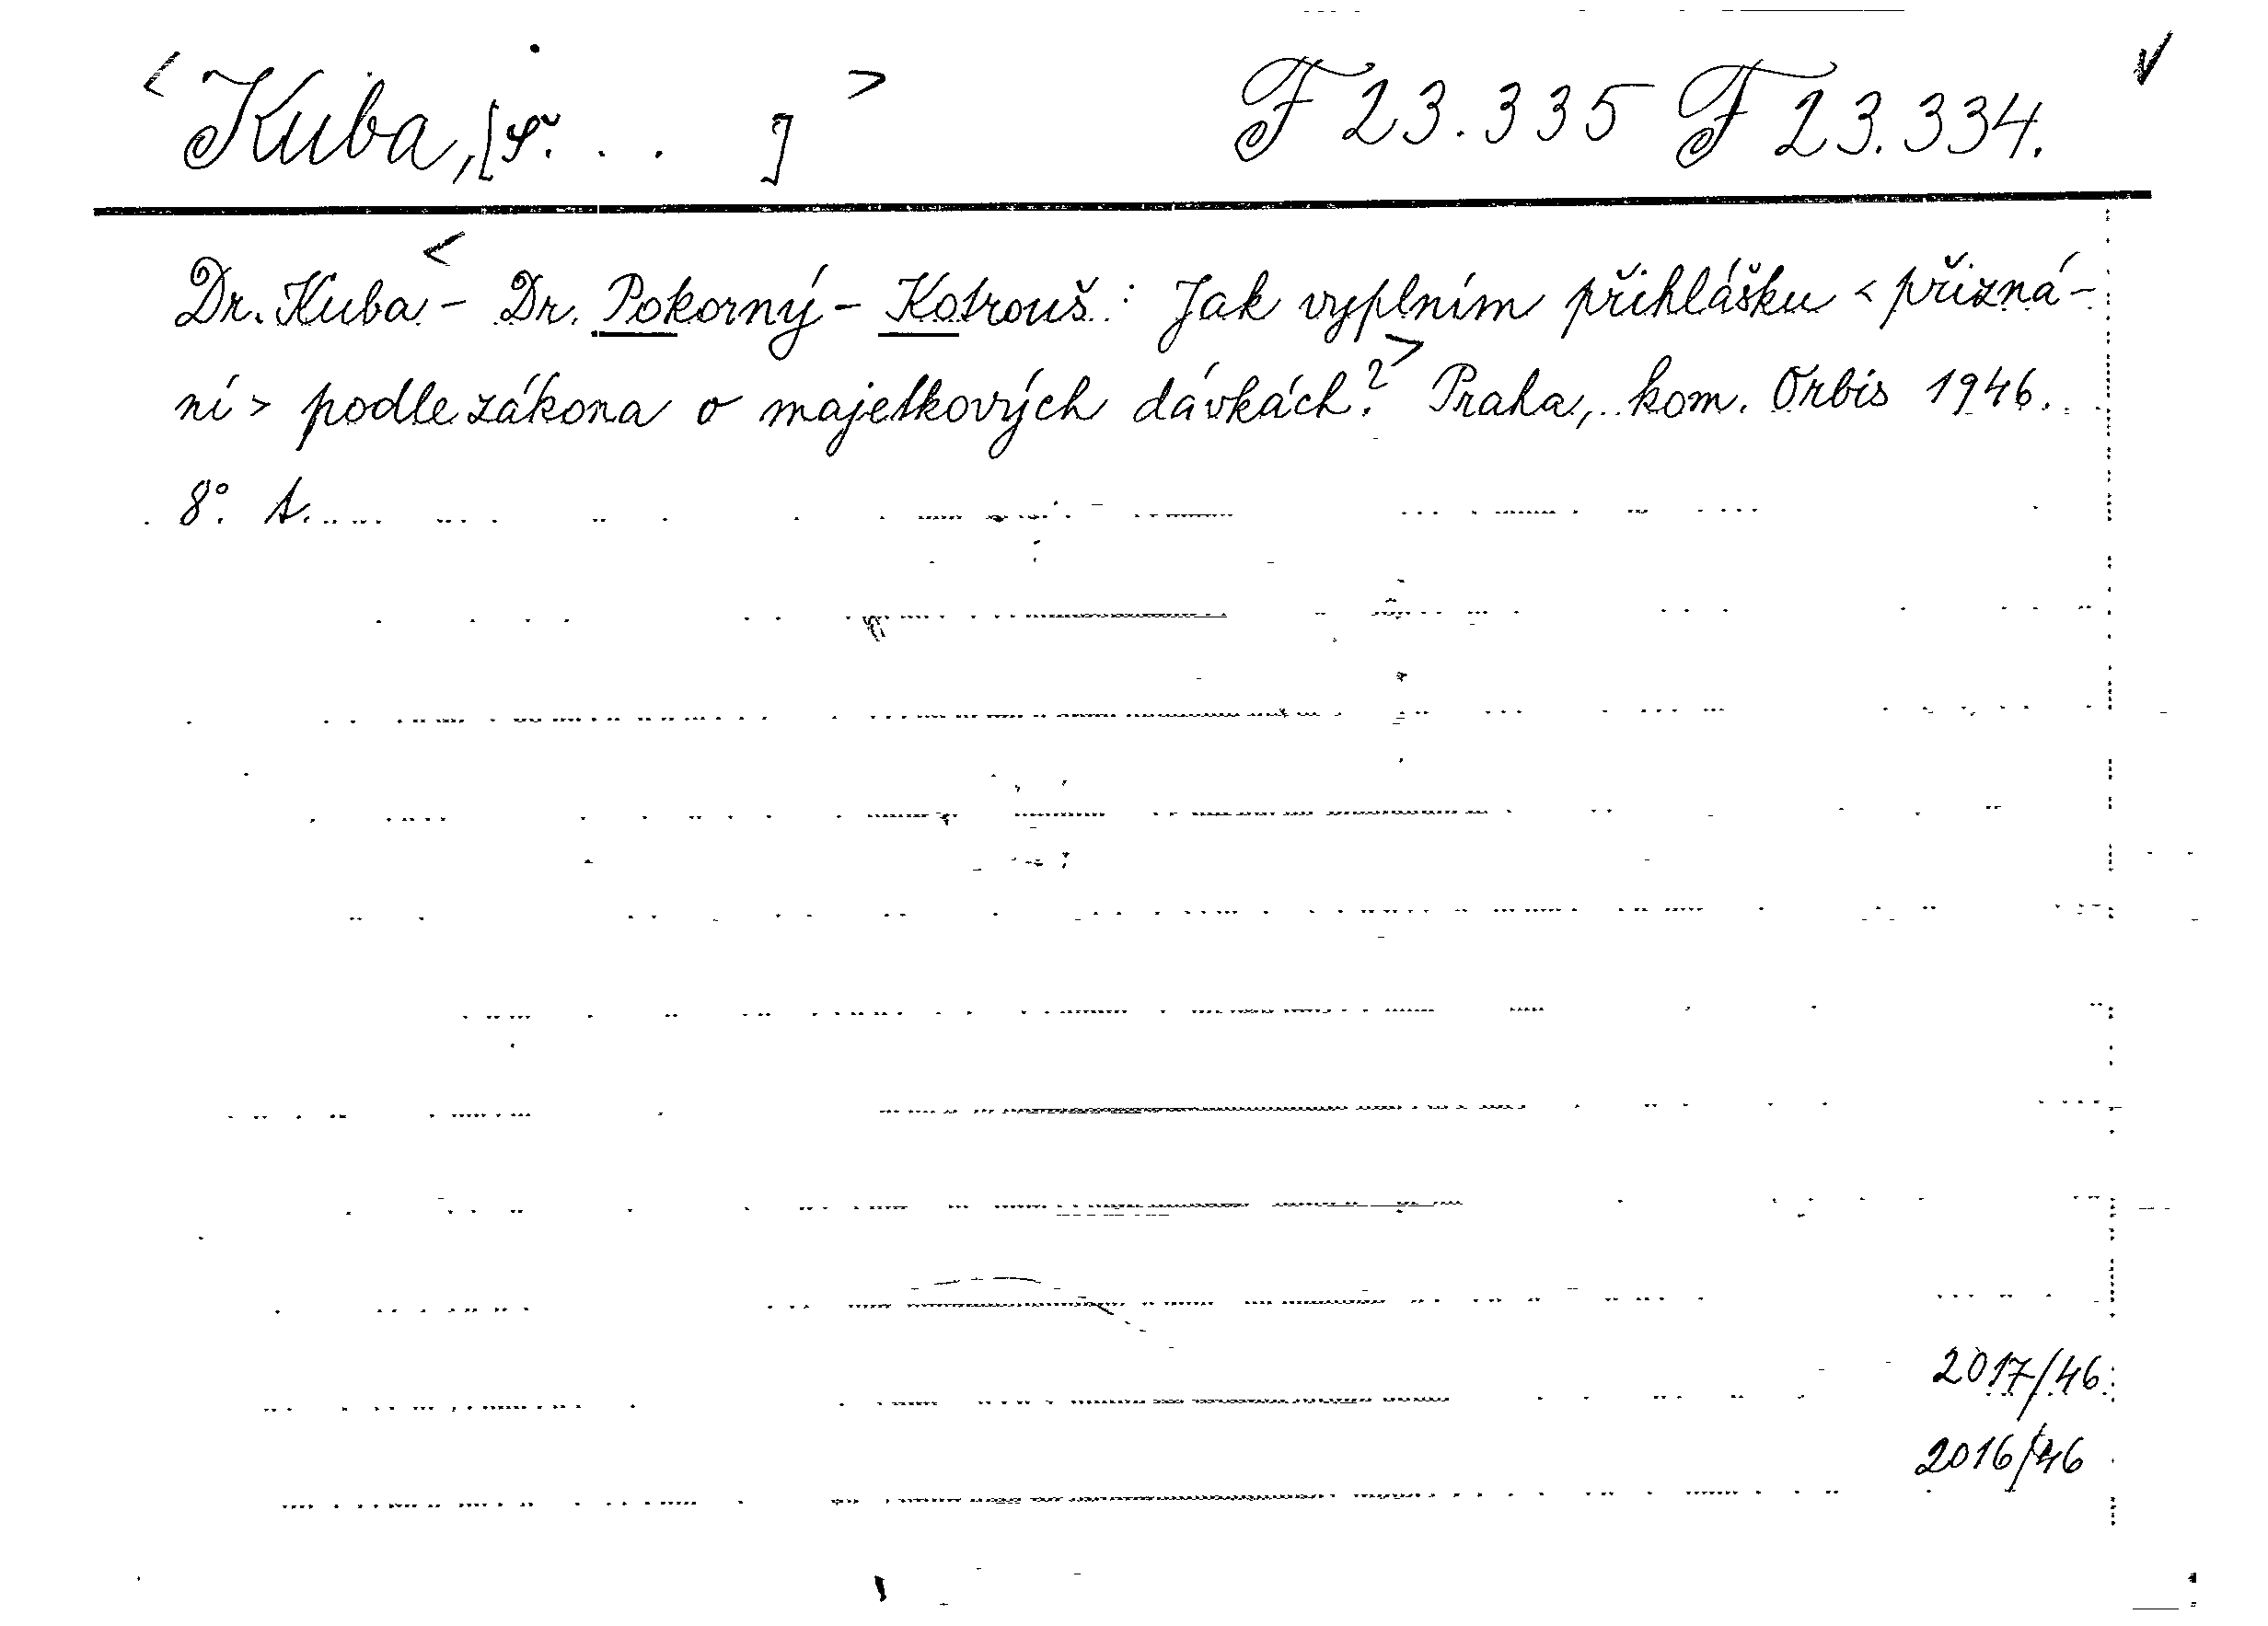 <Kuba, [ . . . ]> F 23.335 F 23.334.
Dr. Kuba < - Dr. Pokorný - Kotrouš: Jak vyplním přihlášku <přizná-
ní> podle zákona o majetkových dávkách?> Praha, kom. Orbis 1946.
8°. A.
2017/46
2016/46